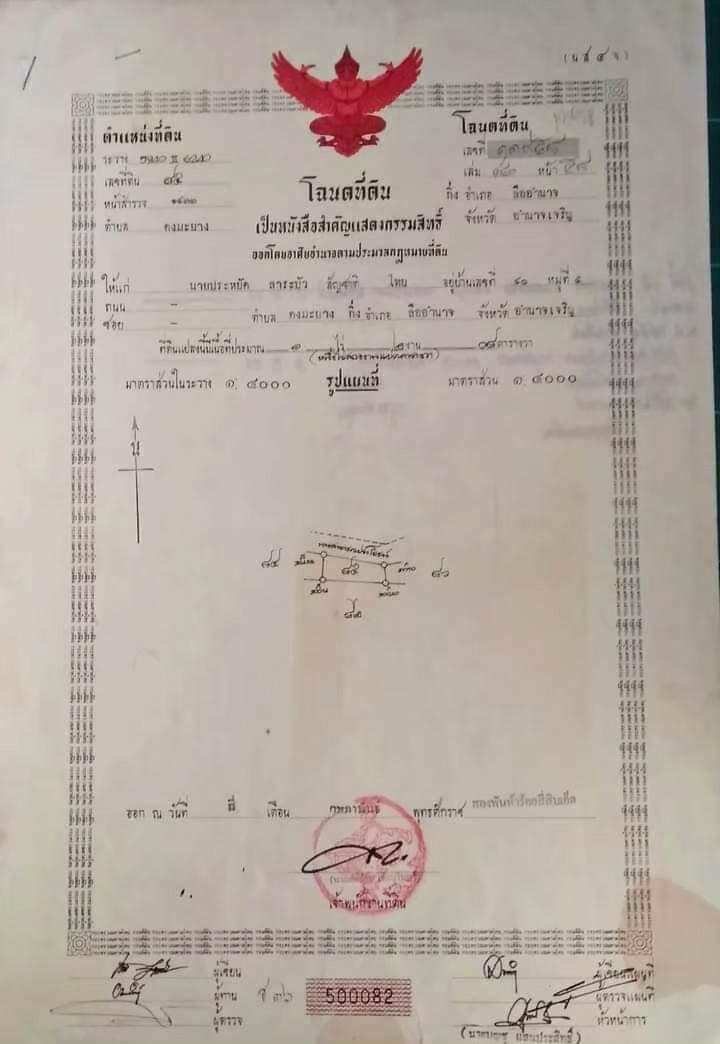 (น.ส. ๔ จ)
ตำแหน่งที่ดิน
โฉนดที่ดิน
ระวาง
เลขที่ ๑๓๙๕๘
เลขที่ดิน ๘๕
เล่ม หน้า ๕๘
หน้าสำรวจ
โฉนดที่ดิน
กิ่ง อำเภอ ลืออำนาจ
ตำบล ดงมะยาง
เป็นหนังสือสำคัญแสดงกรรมสิทธิ์
จังหวัด อำนาจเจริญ
ออกโดยอาศัยอำนาจตามประมวลกฎหมายที่ดิน
ให้แก่ นายประหยัด ลาระบัว สัญชาติ ไทย อยู่บ้านเลขที่ ๔๐ หมู่ที่
ถนน -
ซอย - ตำบล ดงมะยาง กิ่ง อำเภอ ลืออำนาจ จังหวัด อำนาจเจริญ
ที่ดินแปลงนี้มีเนื้อที่ประมาณ ๑ ไร่ งาน ตารางวา
มาตราส่วนในระวาง ๑: ๔๐๐๐ รูปแผนที่ มาตราส่วน ๑: ๔๐๐๐
น
ทางสาธารณประโยชน์
๘๔ ๘๕ ๘๖
ออก ณ วันที่ สี่ เดือน กุมภาพันธ์ พุทธศักราช สองพันห้าร้อยสี่สิบเอ็ด
เจ้าพนักงานที่ดิน
ผู้เขียน
ผู้เขียนแผนที่
ผู้ทาน
500082
ผู้ตรวจแผนที่
ผู้ตรวจ
หัวหน้าการ
(นายบุญชู แสนประสิทธิ์)